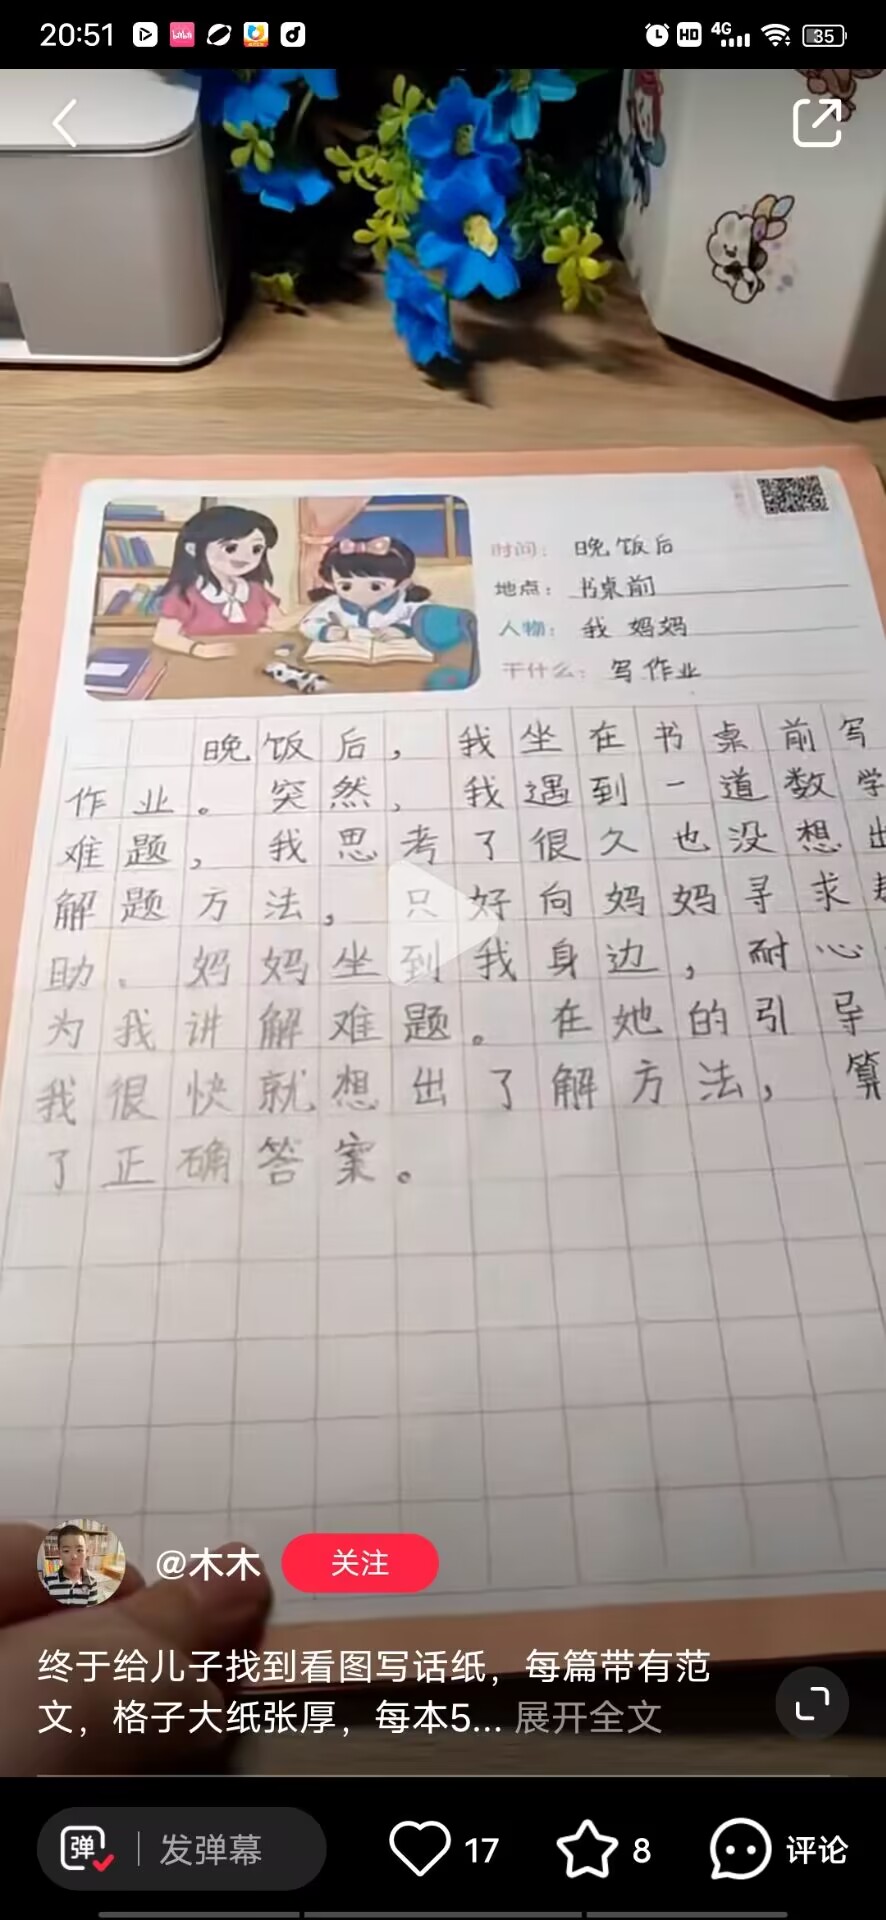 20:51
HD 4G 35
时间：晚饭后
地点：书桌前
人物：我 妈妈
干什么：写作业
晚饭后，我坐在书桌前写
作业。突然，我遇到一道数学
难题，我思考了很久也没想出
解题方法，只好向妈妈寻求
助。妈妈坐到我身边，耐心
为我讲解难题。在她的引导
我很快就想出了解方法，算
了正确答案。
@木木 关注
终于给儿子找到看图写话纸，每篇带有范
文，格子大纸张厚，每本5... 展开全文
弹 发弹幕 17 8 评论